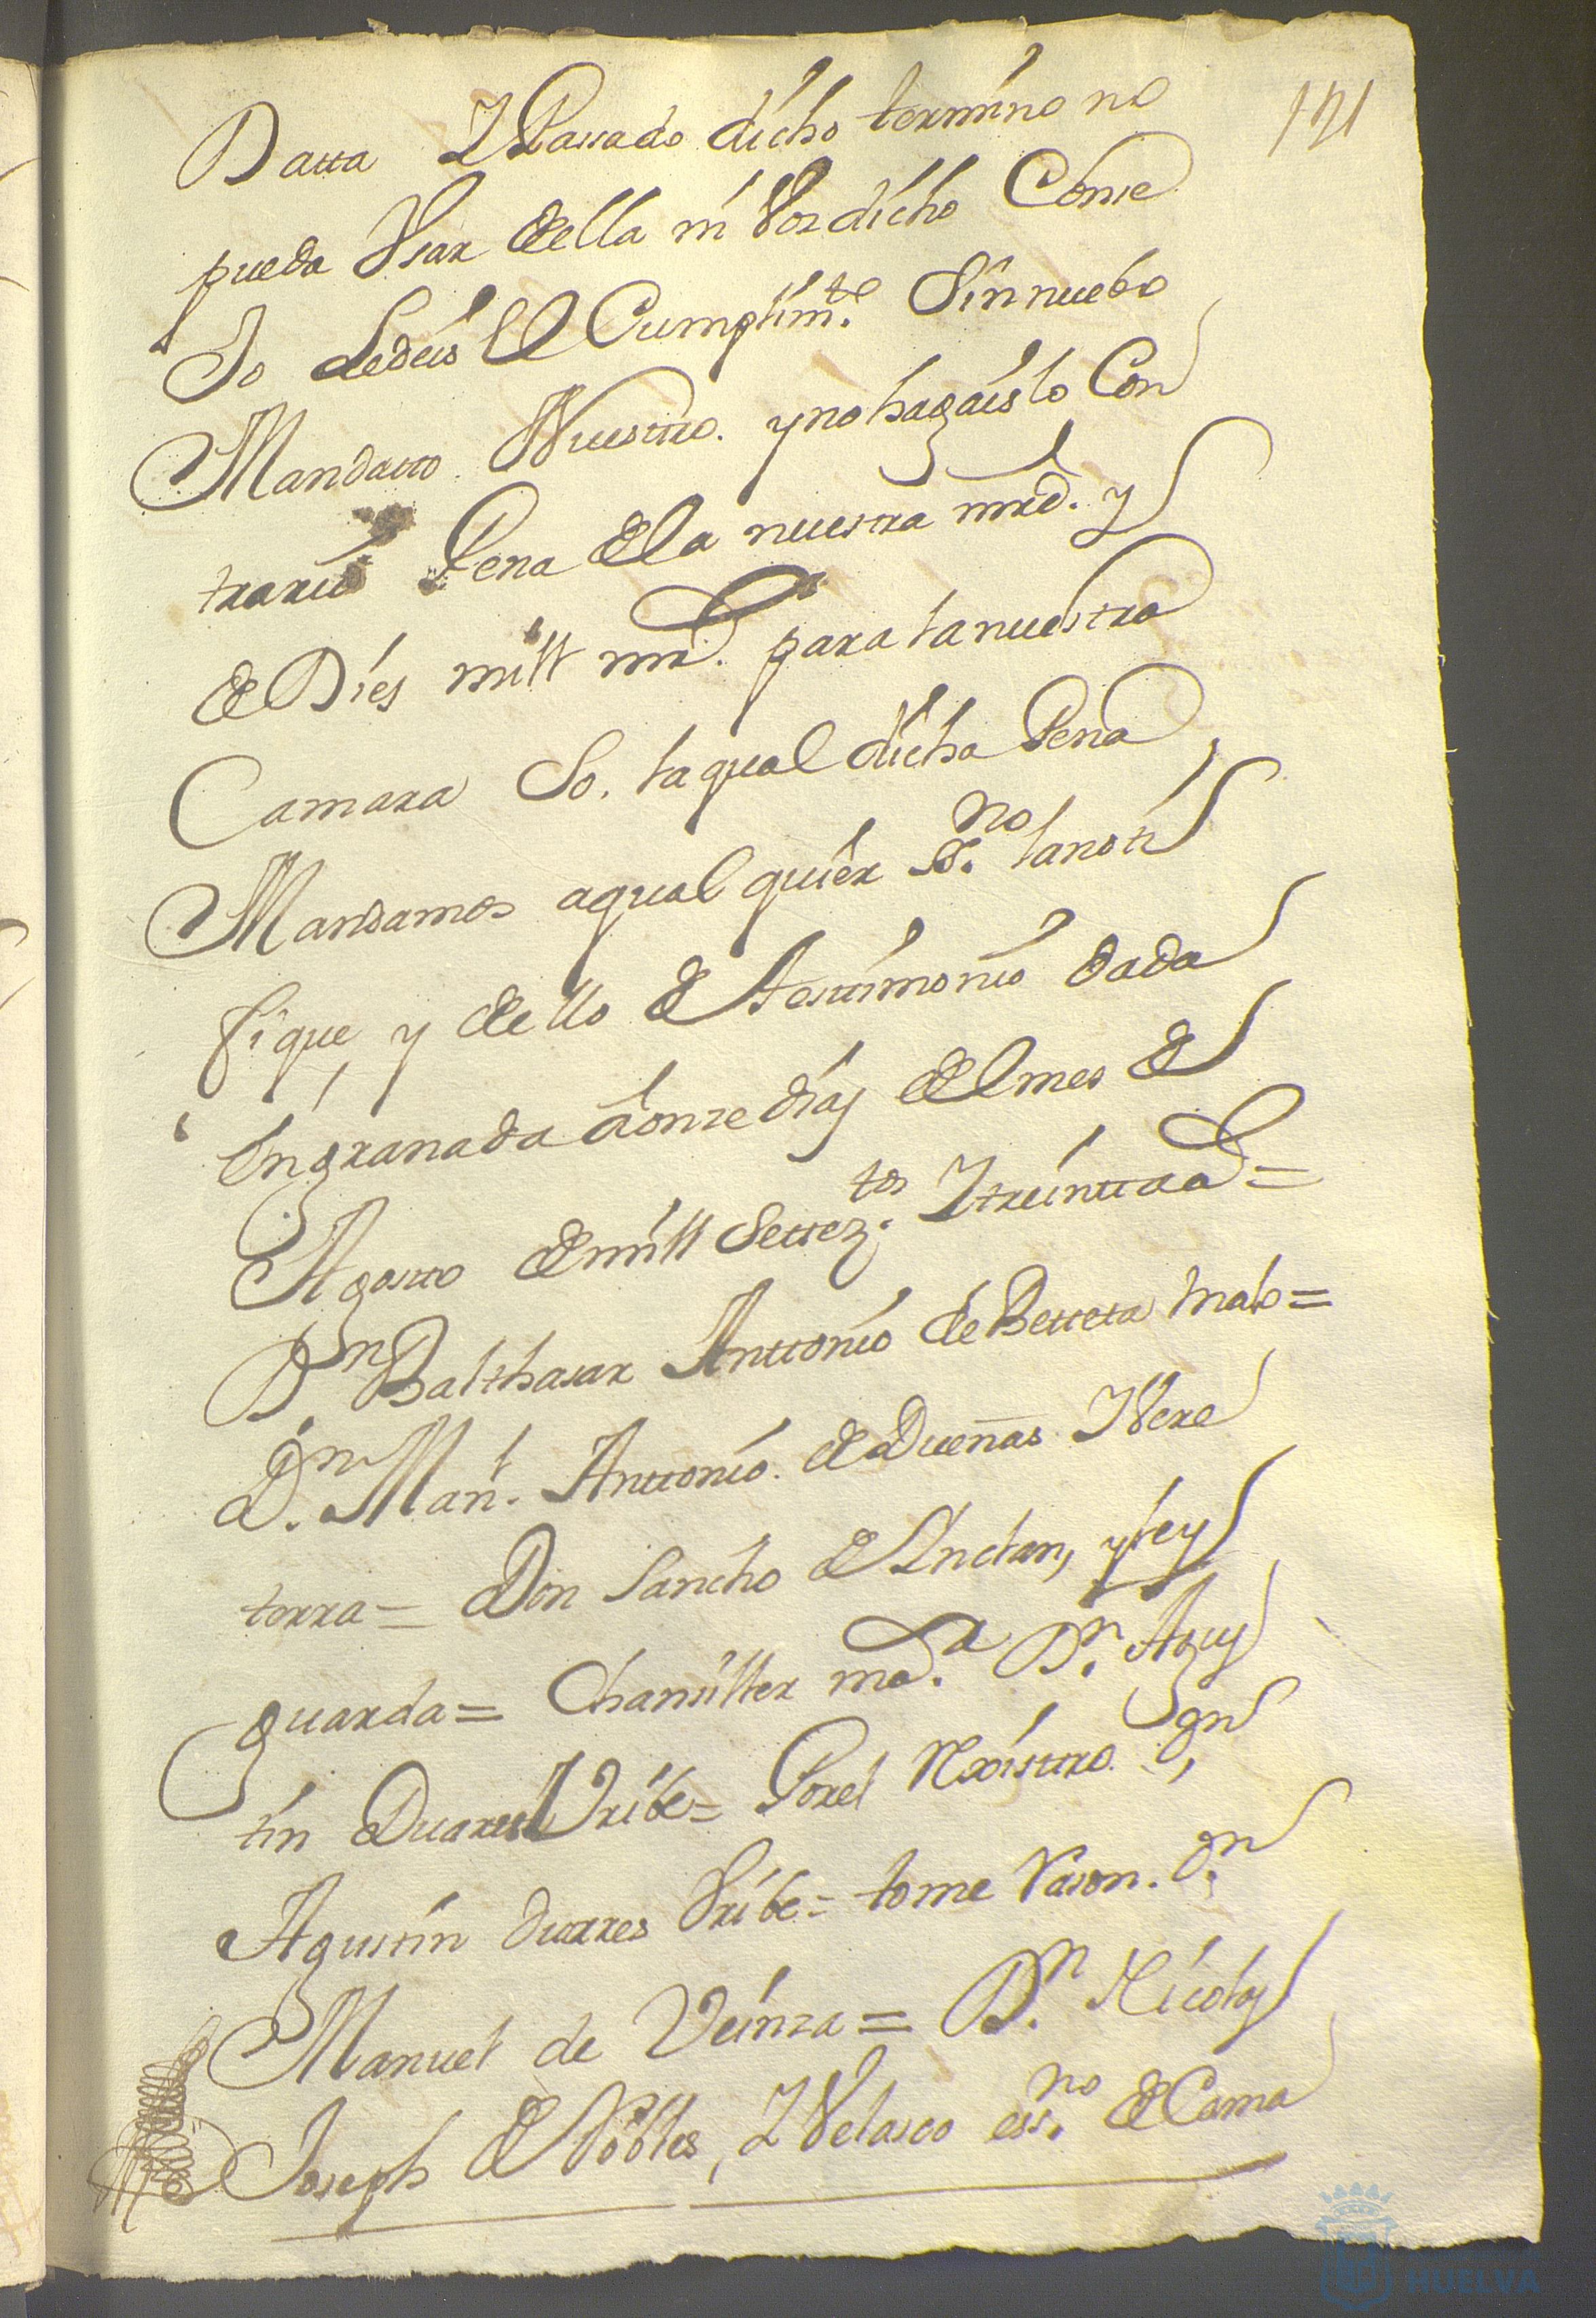 171
Datta Y Passado dicho termino no
pueda Vsar della ni Vos dicho Conse
Jo Ledeis El Cumplim.to Sin nuebo
Mandatto Nuestro. y no hagais lo Con
trario Pena de la nuestra mrd. y
de Dies mill mrs. para la nuestra
Camara So. la qual dicha Pena
Mandamos a qual quier ss.no la noti
fique, y de llo de testimonio dada
En granada a onze dias del mes de
Agosto de mill Settez.tos Y treintta a =
Dn Balthasar Anttonio de Betteta malo =
D.n Man.l Anttonio. de Dueñas Y Vere
terra = Don Sancho de Inclan, y ley
guarda = Chansiller ma.a D.n Aguſ
tin Duares Vribe = Por el Rexisttro. Dn,
Agustin duarres Vribe = tome Rason. D.n
Manuel de Veinza = D.n Nicolaſ
Joseph de Robles, Y Velasco ess.no de Cama
HUELVA